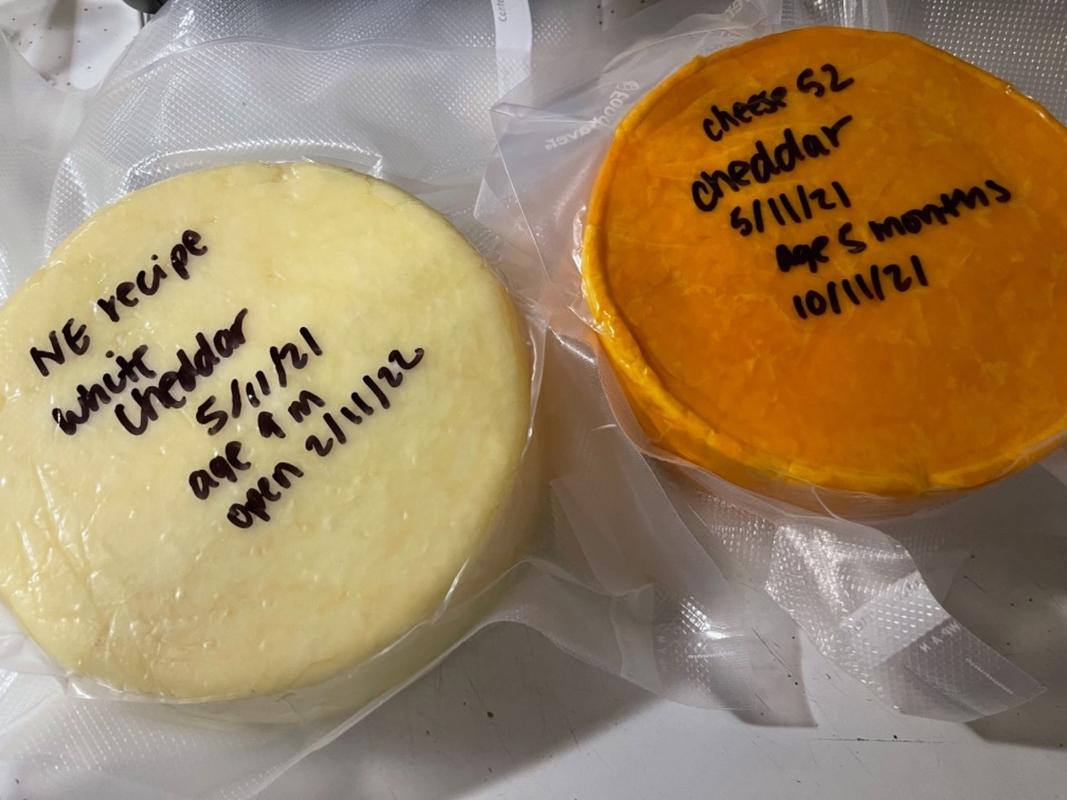 NE recipe
white
cheddar
5/11/21
age 9 m
open 2/11/22
cheese 52
cheddar
5/11/21
age 5 months
10/11/21